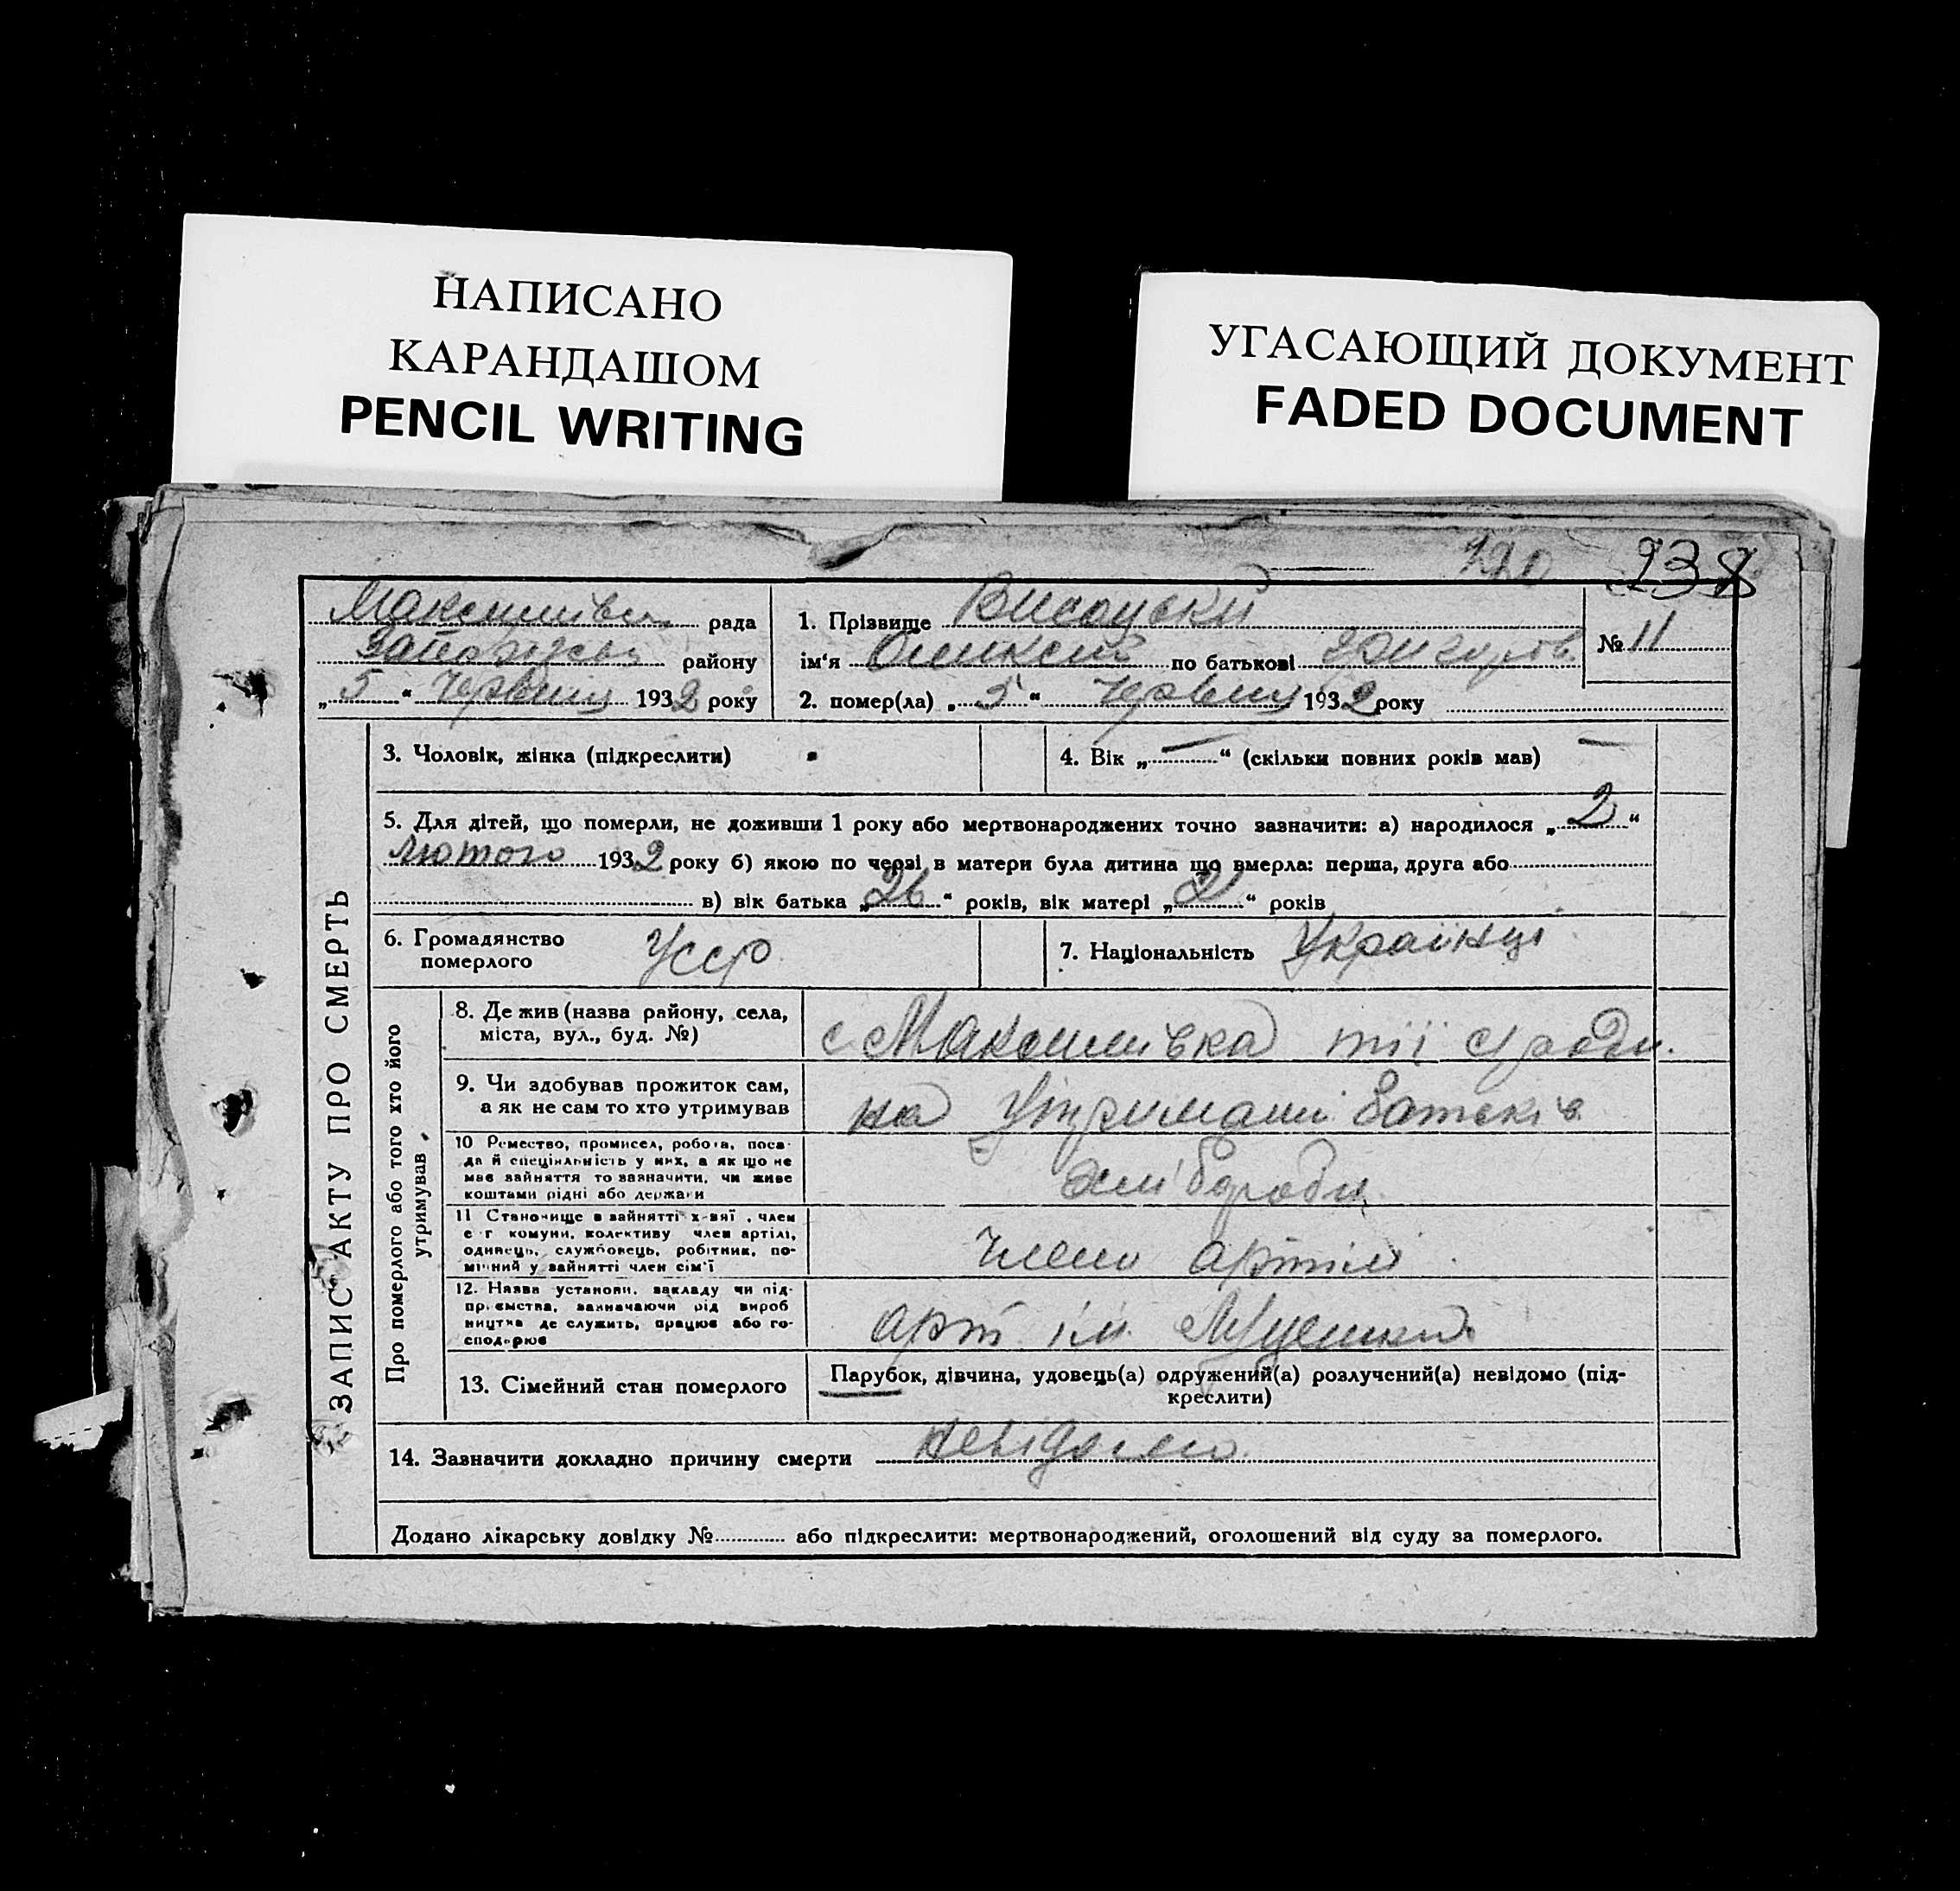 НАПИСАНО
КАРАНДАШОМ
PENCIL WRITING
УГАСАЮЩИЙ ДОКУМЕНТ
FADED DOCUMENT
220 238
рада
району
„5“ Червня 1932 року
1. Прізвище Висоцький
ім'я Олексій по батькові Григоров
2. помер(ла) „5“ Червня 1932 року
№ 11
ЗАПИС АКТУ ПРО СМЕРТЬ
3. Чоловік, жінка (підкреслити)
4. Вік „—“ (скільки повних років мав) —
5. Для дітей, що померли, не доживши 1 року або мертвонароджених точно зазначити: а) народилося „2“
Лютого 1932 року б) якою по черзі в матери була дитина що вмерла: перша, друга або
в) вік батька „26“ років, вік матері „21“ років
6. Громадянство
померлого
Усср
7. Національність Українці
Про померлого або того хто його
утримував
8. Де жив (назва району, села,
міста, вул., буд. №)
с Максимівка тії с/ради.
9. Чи здобував прожиток сам,
а як не сам то хто утримував
на утриманні батьків
10 Ремество, промисел, робота, поса-
да й спеціяльність у них, а як що не
має зайняття то зазначити, чи живе
коштами рідні або держави
хлібороби
11 Становище в зайнятті х-вяї, член
с г комуни, колективу член артілі,
одинець, службовець, робітник, по-
мічний у зайнятті член сім'ї
член артілі
12. Назва установи, закладу чи під-
приємства, зазначаючи рід вироб
ництва де служить, працює або го-
сподарює
арт ім
13. Сімейний стан померлого
Парубок, дівчина, удовець(а) одружений(а) розлучений(а) невідомо (під-
креслити)
14. Зазначити докладно причину смерти невідомо
Додано лікарську довідку № або підкреслити: мертвонароджений, оголошений від суду за померлого.